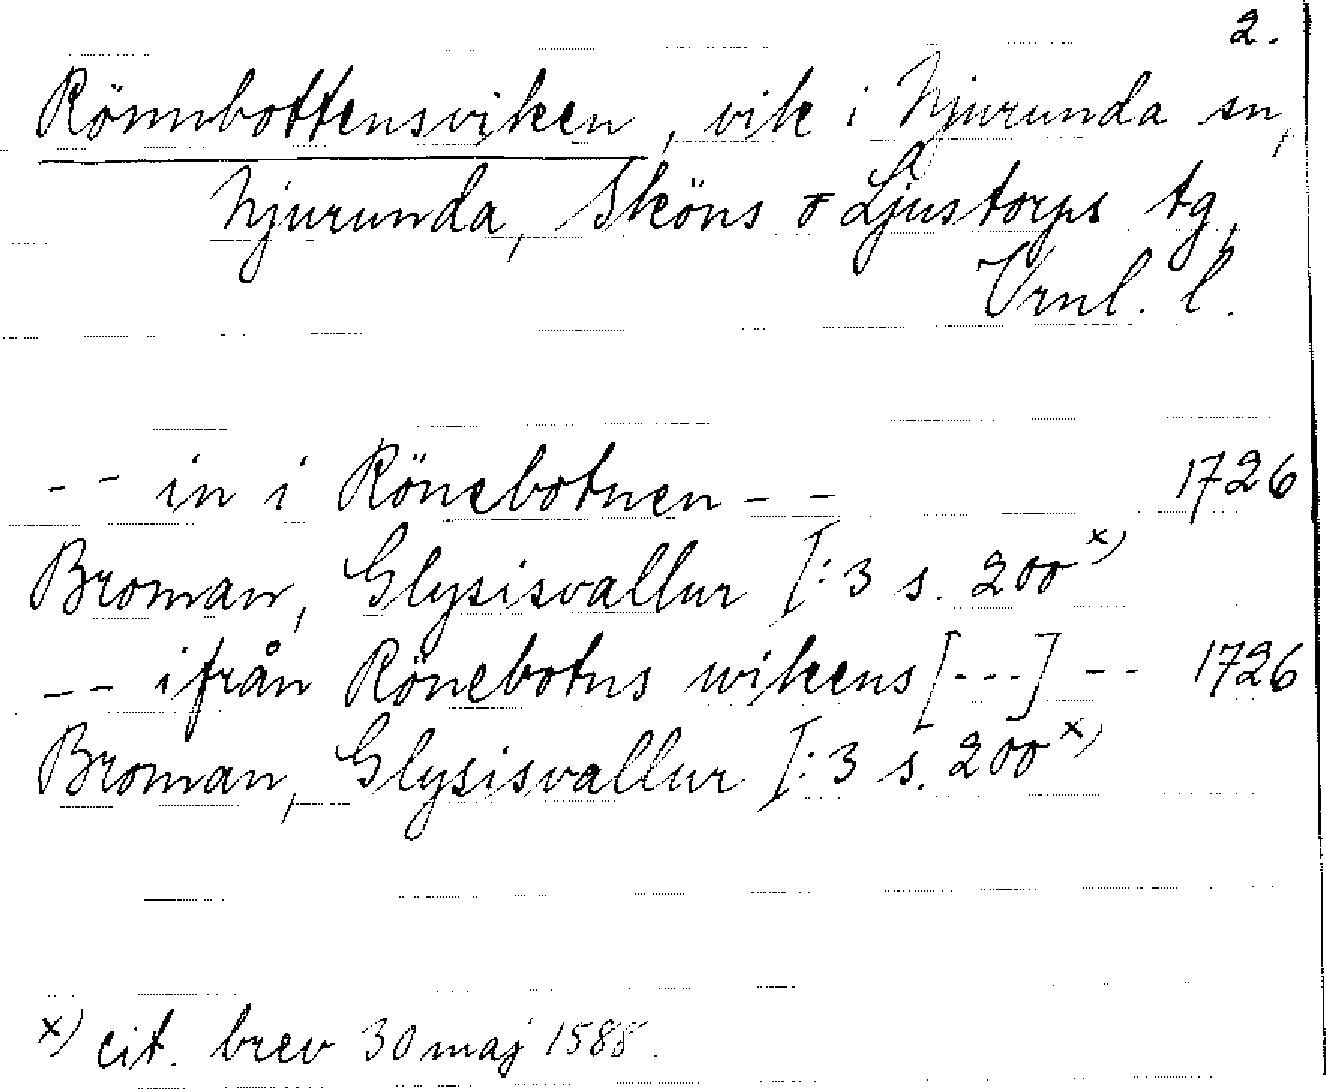 2.
Rönnbottensviken, vik i Njurunda sn,
Njurunda, Sköns o Ljustorps tg,
Vrnl. l.
-- in i Rönebotnen -- 1726
Broman, Glysisvallur I:3 s. 200 x)
-- ifrån Rönebotns wikens [---] -- 1726
Broman, Glysisvallur I:3 s. 200 x)
x) cit. brev 30 maj 1588.